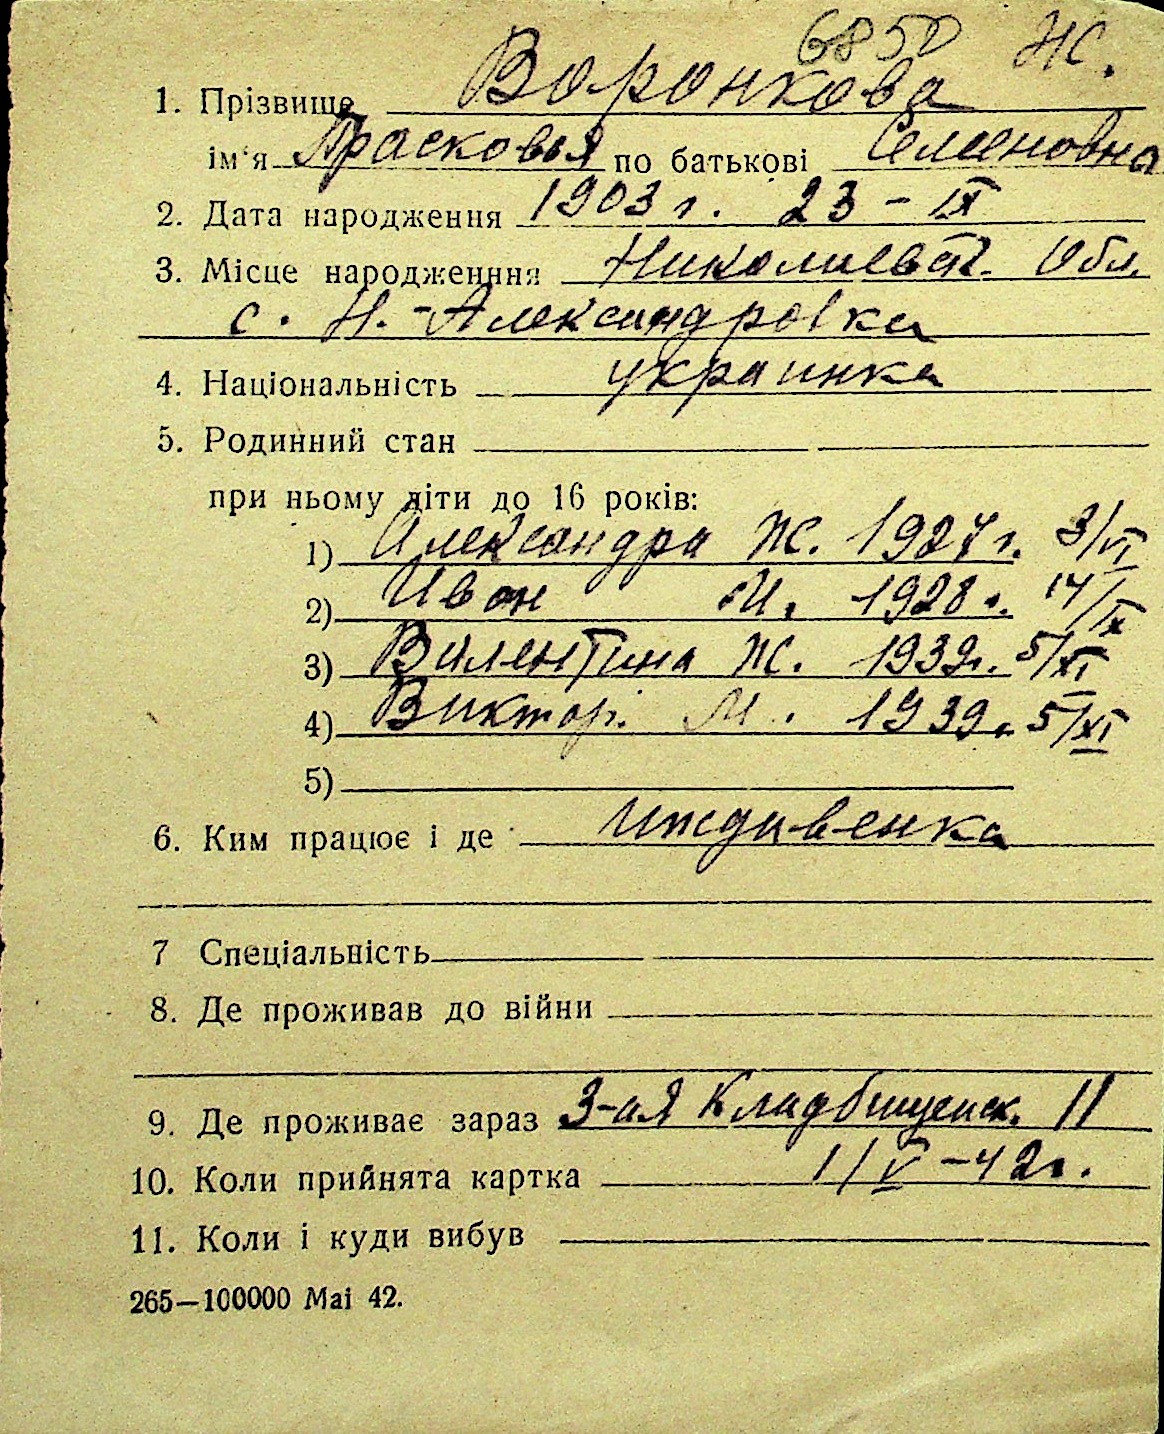 6850 Ж.
1. Прізвище Воронкова
ім'я Прасковья по батькові Семеновна
2. Дата народження 1903 г. 23 - IX
3. Місце народженння Николаевск. Обл.
с. Н.-Александровка
4. Національність украинка
5. Родинний стан
при ньому діти до 16 років:
1) Александра Ж. 1927 г. 3/VI
2) Иван М. 1928 г. 14/IX
3) Валентина Ж. 1939г. 5/XI
4) Виктор М. 1939г. 5/XI
5)
6. Ким працює і де иждивенка
7 Спеціальність
8. Де проживав до війни
9. Де проживає зараз 3-ая Кладбищенск. 11
10. Коли прийнята картка 1/V-42г.
11. Коли і куди вибув
265—100000 Mai 42.